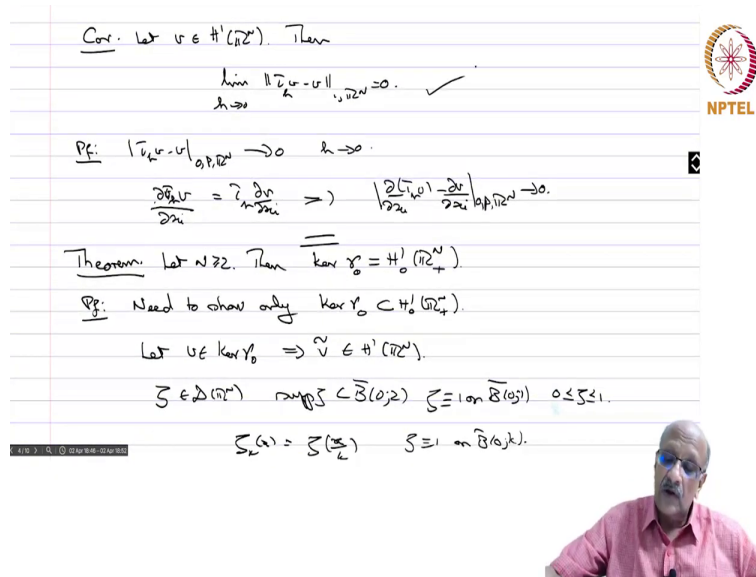 Cor. Let v ∈ H¹(ℝᴺ). Then
lim ‖τ̄ₕv - v‖₁,ℝᴺ = 0. ✓
h→0
NPTEL
Pf: |τ̄ₕv - v|₀,ₚ,ℝᴺ → 0 h → 0.
∂τ̄ₕv/∂xᵢ = τ̄ₕ ∂v/∂xᵢ => |∂(τ̄ₕv)/∂xᵢ - ∂v/∂xᵢ|₀,ₚ,ℝᴺ → 0.
Theorem. Let N ≥ 2. Then ker γ₀ = H₀¹(ℝ₊ᴺ).
Pf: Need to show only ker γ₀ ⊂ H₀¹(ℝ₊ᴺ).
Let v ∈ ker γ₀ ⟹ ṽ ∈ H¹(ℝᴺ).
ζ ∈ D(ℝᴺ) supp ζ ⊂ B̄(0;2) ζ ≡ 1 on B̄(0;1) 0 ≤ ζ ≤ 1.
ζₖ(x) = ζ(x/k) ζ ≡ 1 on B̄(0;k).
4 / 10 02 Apr 18:46 - 02 Apr 18:52